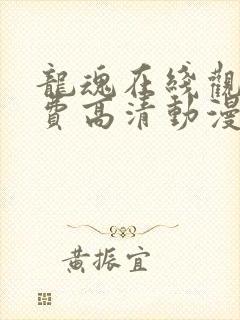 龍魂在綫觀
費高清動漫
黃振宜